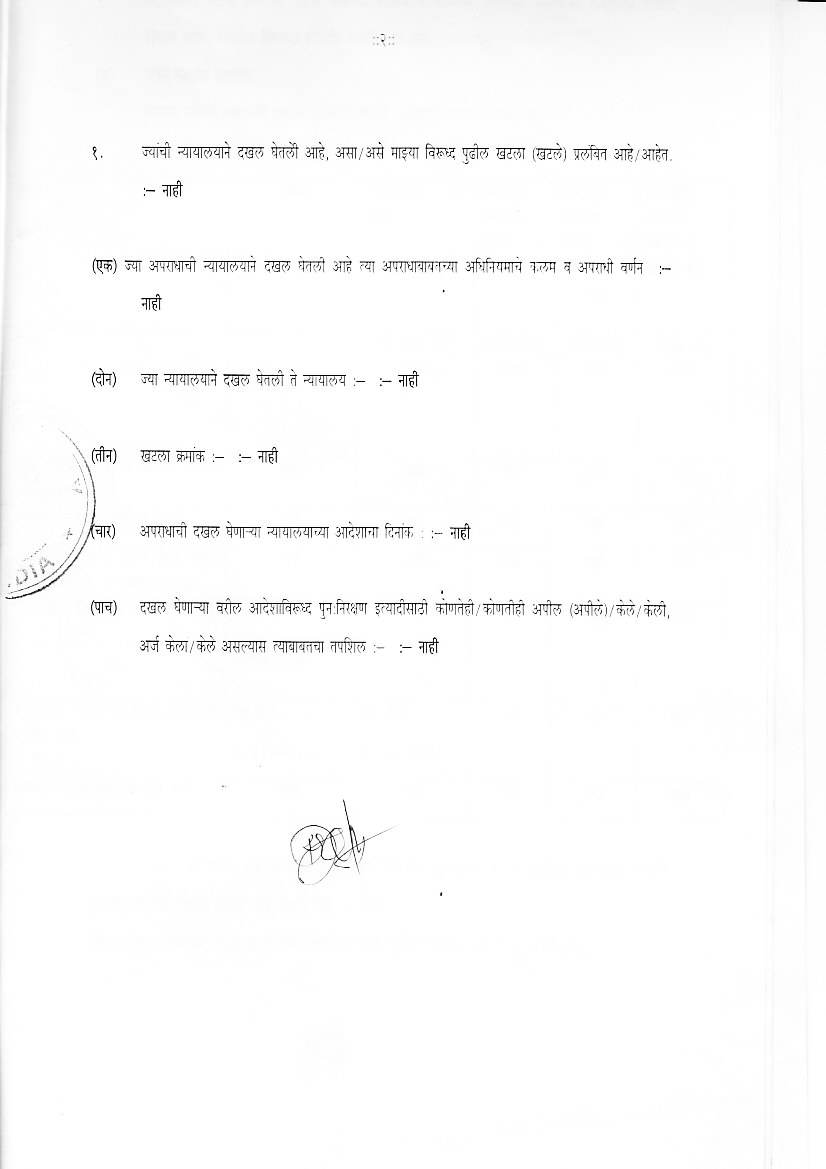 ::२::
१. ज्यांची न्यायालयाने दखल घेतली आहे, असा/असे माझ्या विरूध्द पुढील खटला (खटले) प्रलंबित आहे/आहेत.
:– नाही
(एक) ज्या अपराधाची न्यायालयाने दखल घेतली आहे त्या अपराधाबाबतच्या अधिनियमाचे कलम व अपराधी वर्णन :–
नाही
(दोन) ज्या न्यायालयाने दखल घेतली ते न्यायालय :– :– नाही
(तीन) खटला क्रमांक :– :– नाही
(चार) अपराधाची दखल घेणाऱ्या न्यायालयाच्या आदेशाचा दिनांक : :– नाही
(पाच) दखल घेणाऱ्या वरील आदेशाविरूध्द पुन:निरक्षण इत्यादीसाठी कोणतेही/कोणतीही अपील (अपीले)/केले/केली,
अर्ज केला/केले असल्यास त्याबाबतचा तपशिल :– :– नाही
DIA